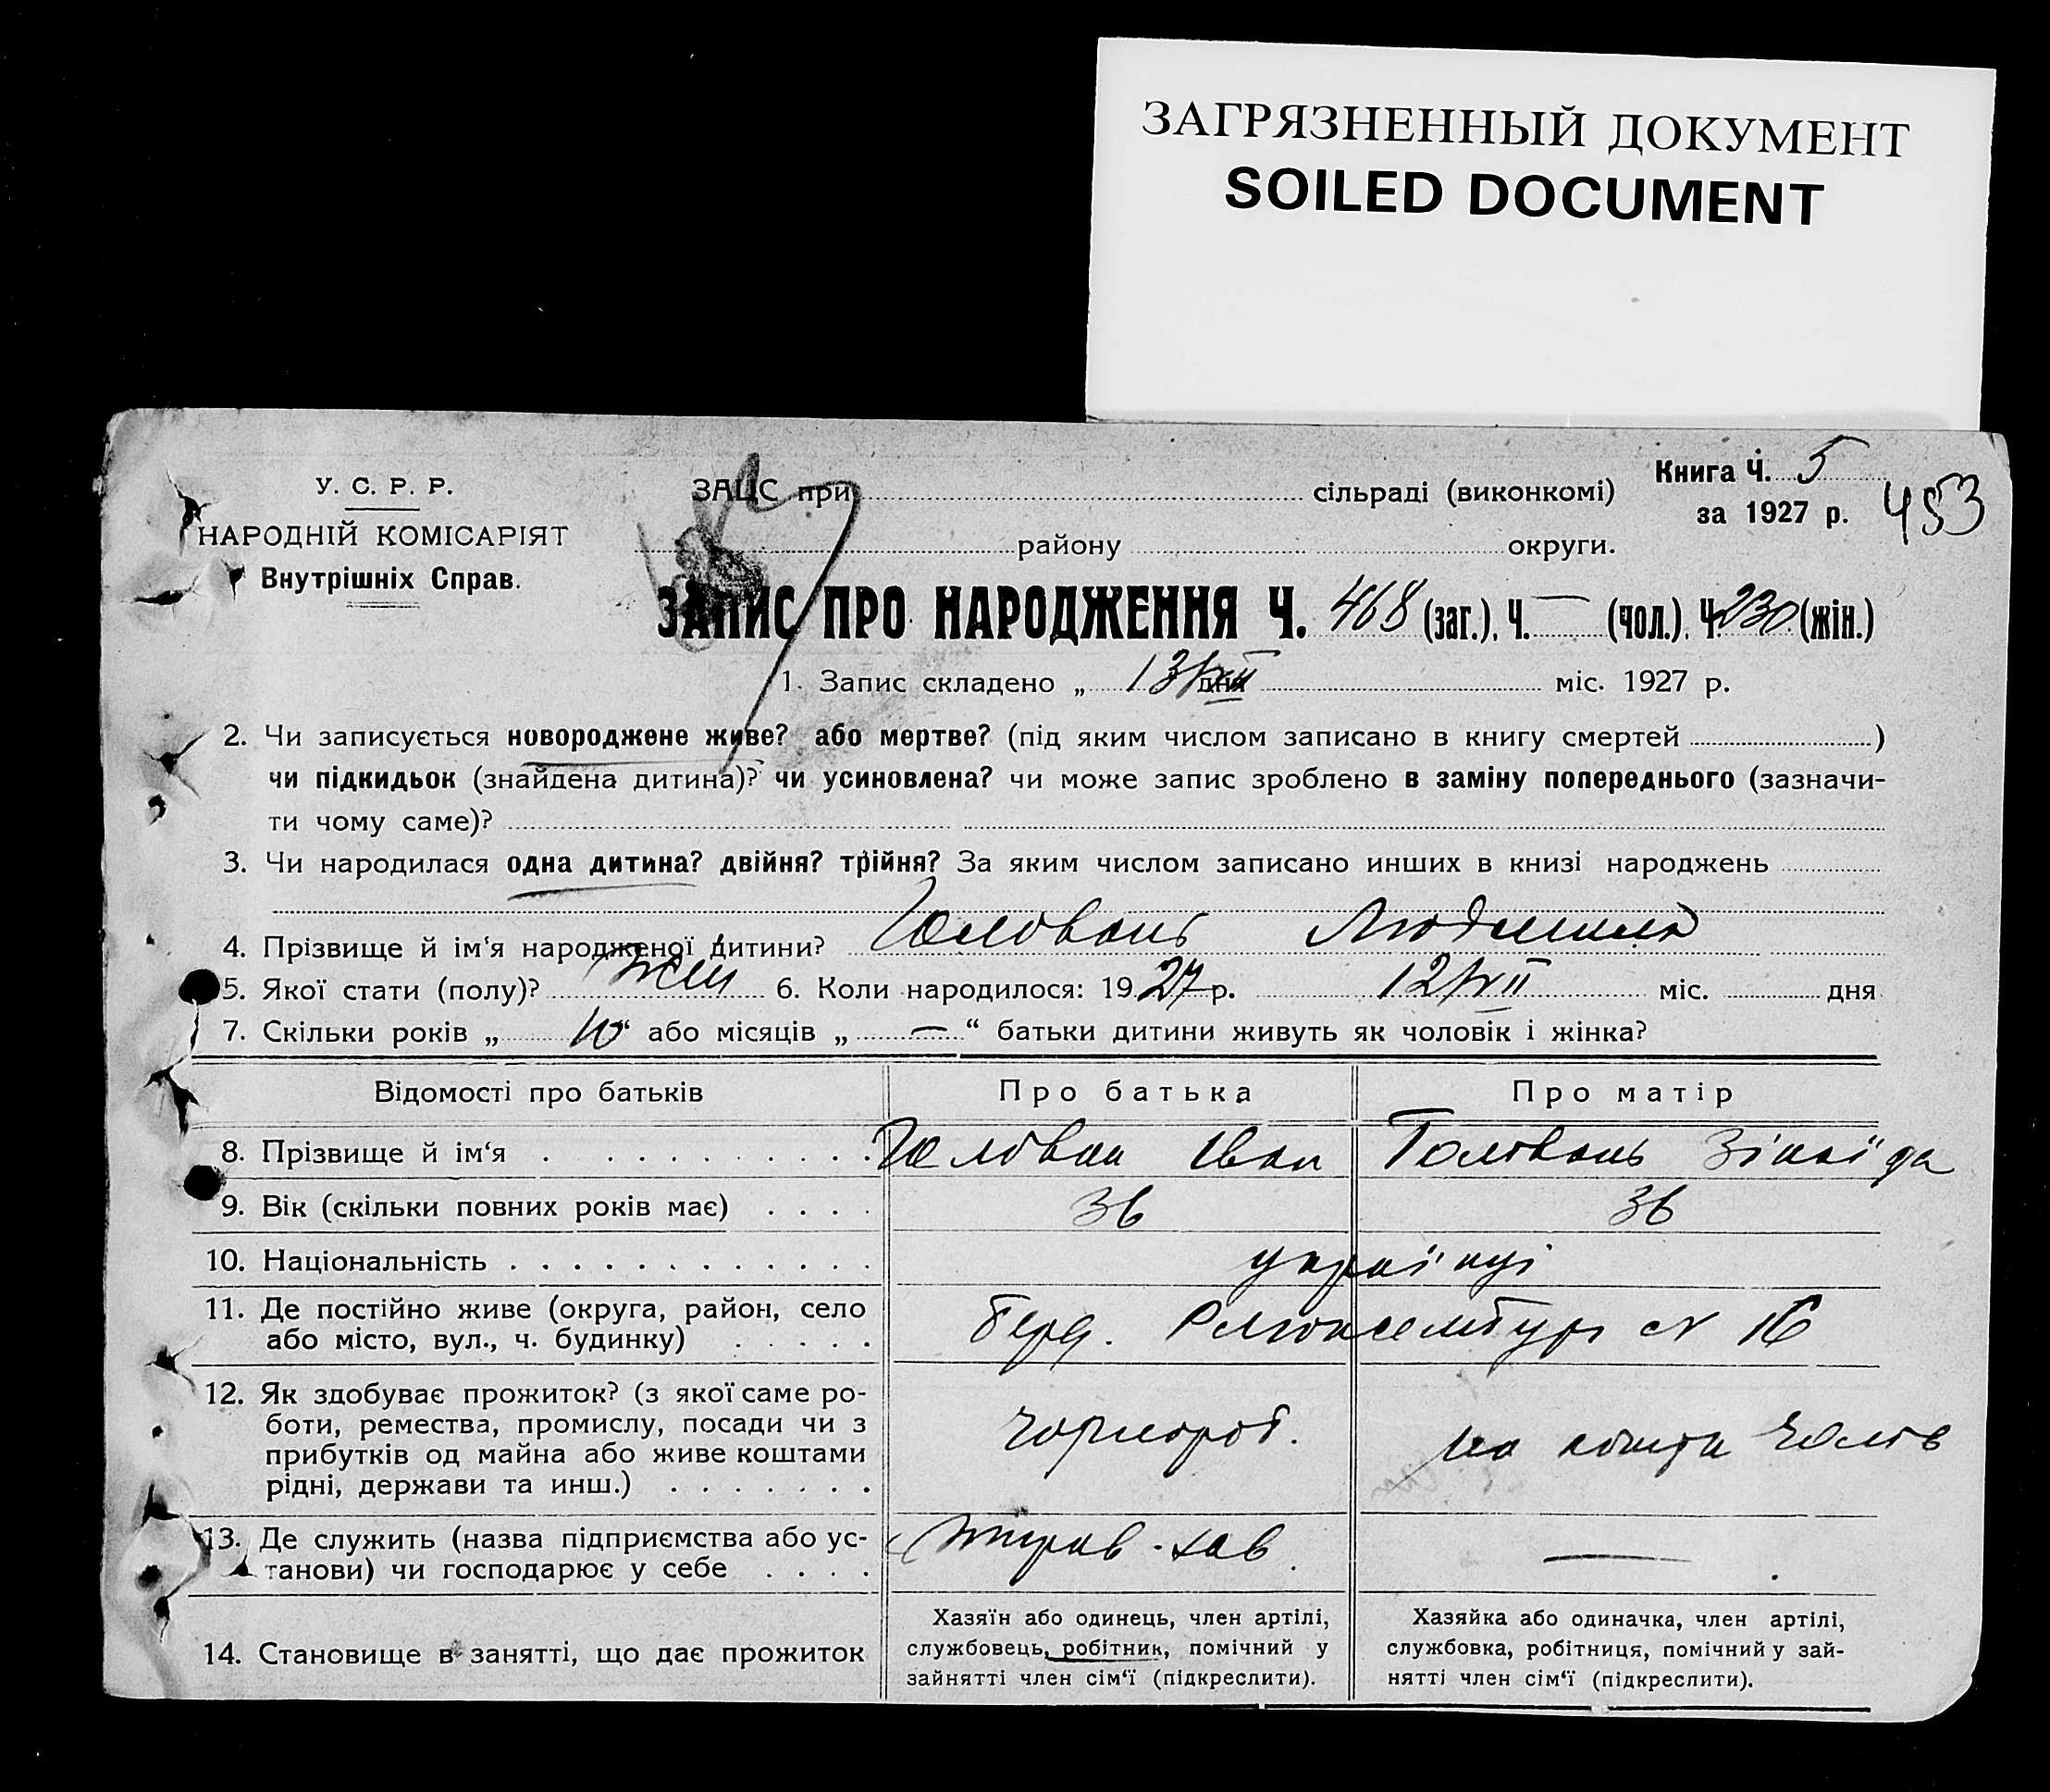 ЗАГРЯЗНЕННЫЙ ДОКУМЕНТ
SOILED DOCUMENT
У. С. Р. Р.
НАРОДНІЙ КОМІСАРІЯТ
Внутрішніх Справ.
ЗАЦС при сільраді (виконкомі)
району округи.
Книга Ч. 5
за 1927 р. 453
ЗАПИС ПРО НАРОДЖЕННЯ Ч. 468 (заг.). Ч. — (чол.). Ч. 230 (жін.)
1. Запис складено „ 13/VII дня міс. 1927 р.
2. Чи записується новороджене живе? або мертве? (під яким числом записано в книгу смертей )
чи підкидьок (знайдена дитина)? чи усиновлена? чи може запис зроблено в заміну попереднього (зазначи-
ти чому саме)?
3. Чи народилася одна дитина? двійня? трійня? За яким числом записано инших в книзі народжень
4. Прізвище й ім‘я народженої дитини? Головань Людмила
5. Якої стати (полу)? жін 6. Коли народилося: 1927 р. 12/VII міс. дня
7. Скільки років „ 10 “ або місяців „ — “ батьки дитини живуть як чоловік і жінка?
Відомості про батьків Про батька Про матір
8. Прізвище й ім‘я Голован Іван Головань Зінаїда
9. Вік (скільки повних років має) 36 36
10. Національність українці
11. Де постійно живе (округа, район, село
або місто, вул., ч. будинку) Берд. Р Люксембург № 16
12. Як здобуває прожиток? (з якої саме ро-
боти, ремества, промислу, посади чи з
прибутків од майна або живе коштами
рідні, держави та инш.) чорнороб. на кошти чолов
13. Де служить (назва підприємства або ус-
танови) чи господарює у себе —
14. Становище в занятті, що дає прожиток
Хазяїн або одинець, член артілі,
службовець, робітник, помічний у
зайнятті член сім‘ї (підкреслити).
Хазяйка або одиначка, член артілі,
службовка, робітниця, помічний у зай-
нятті член сім‘ї (підкреслити).